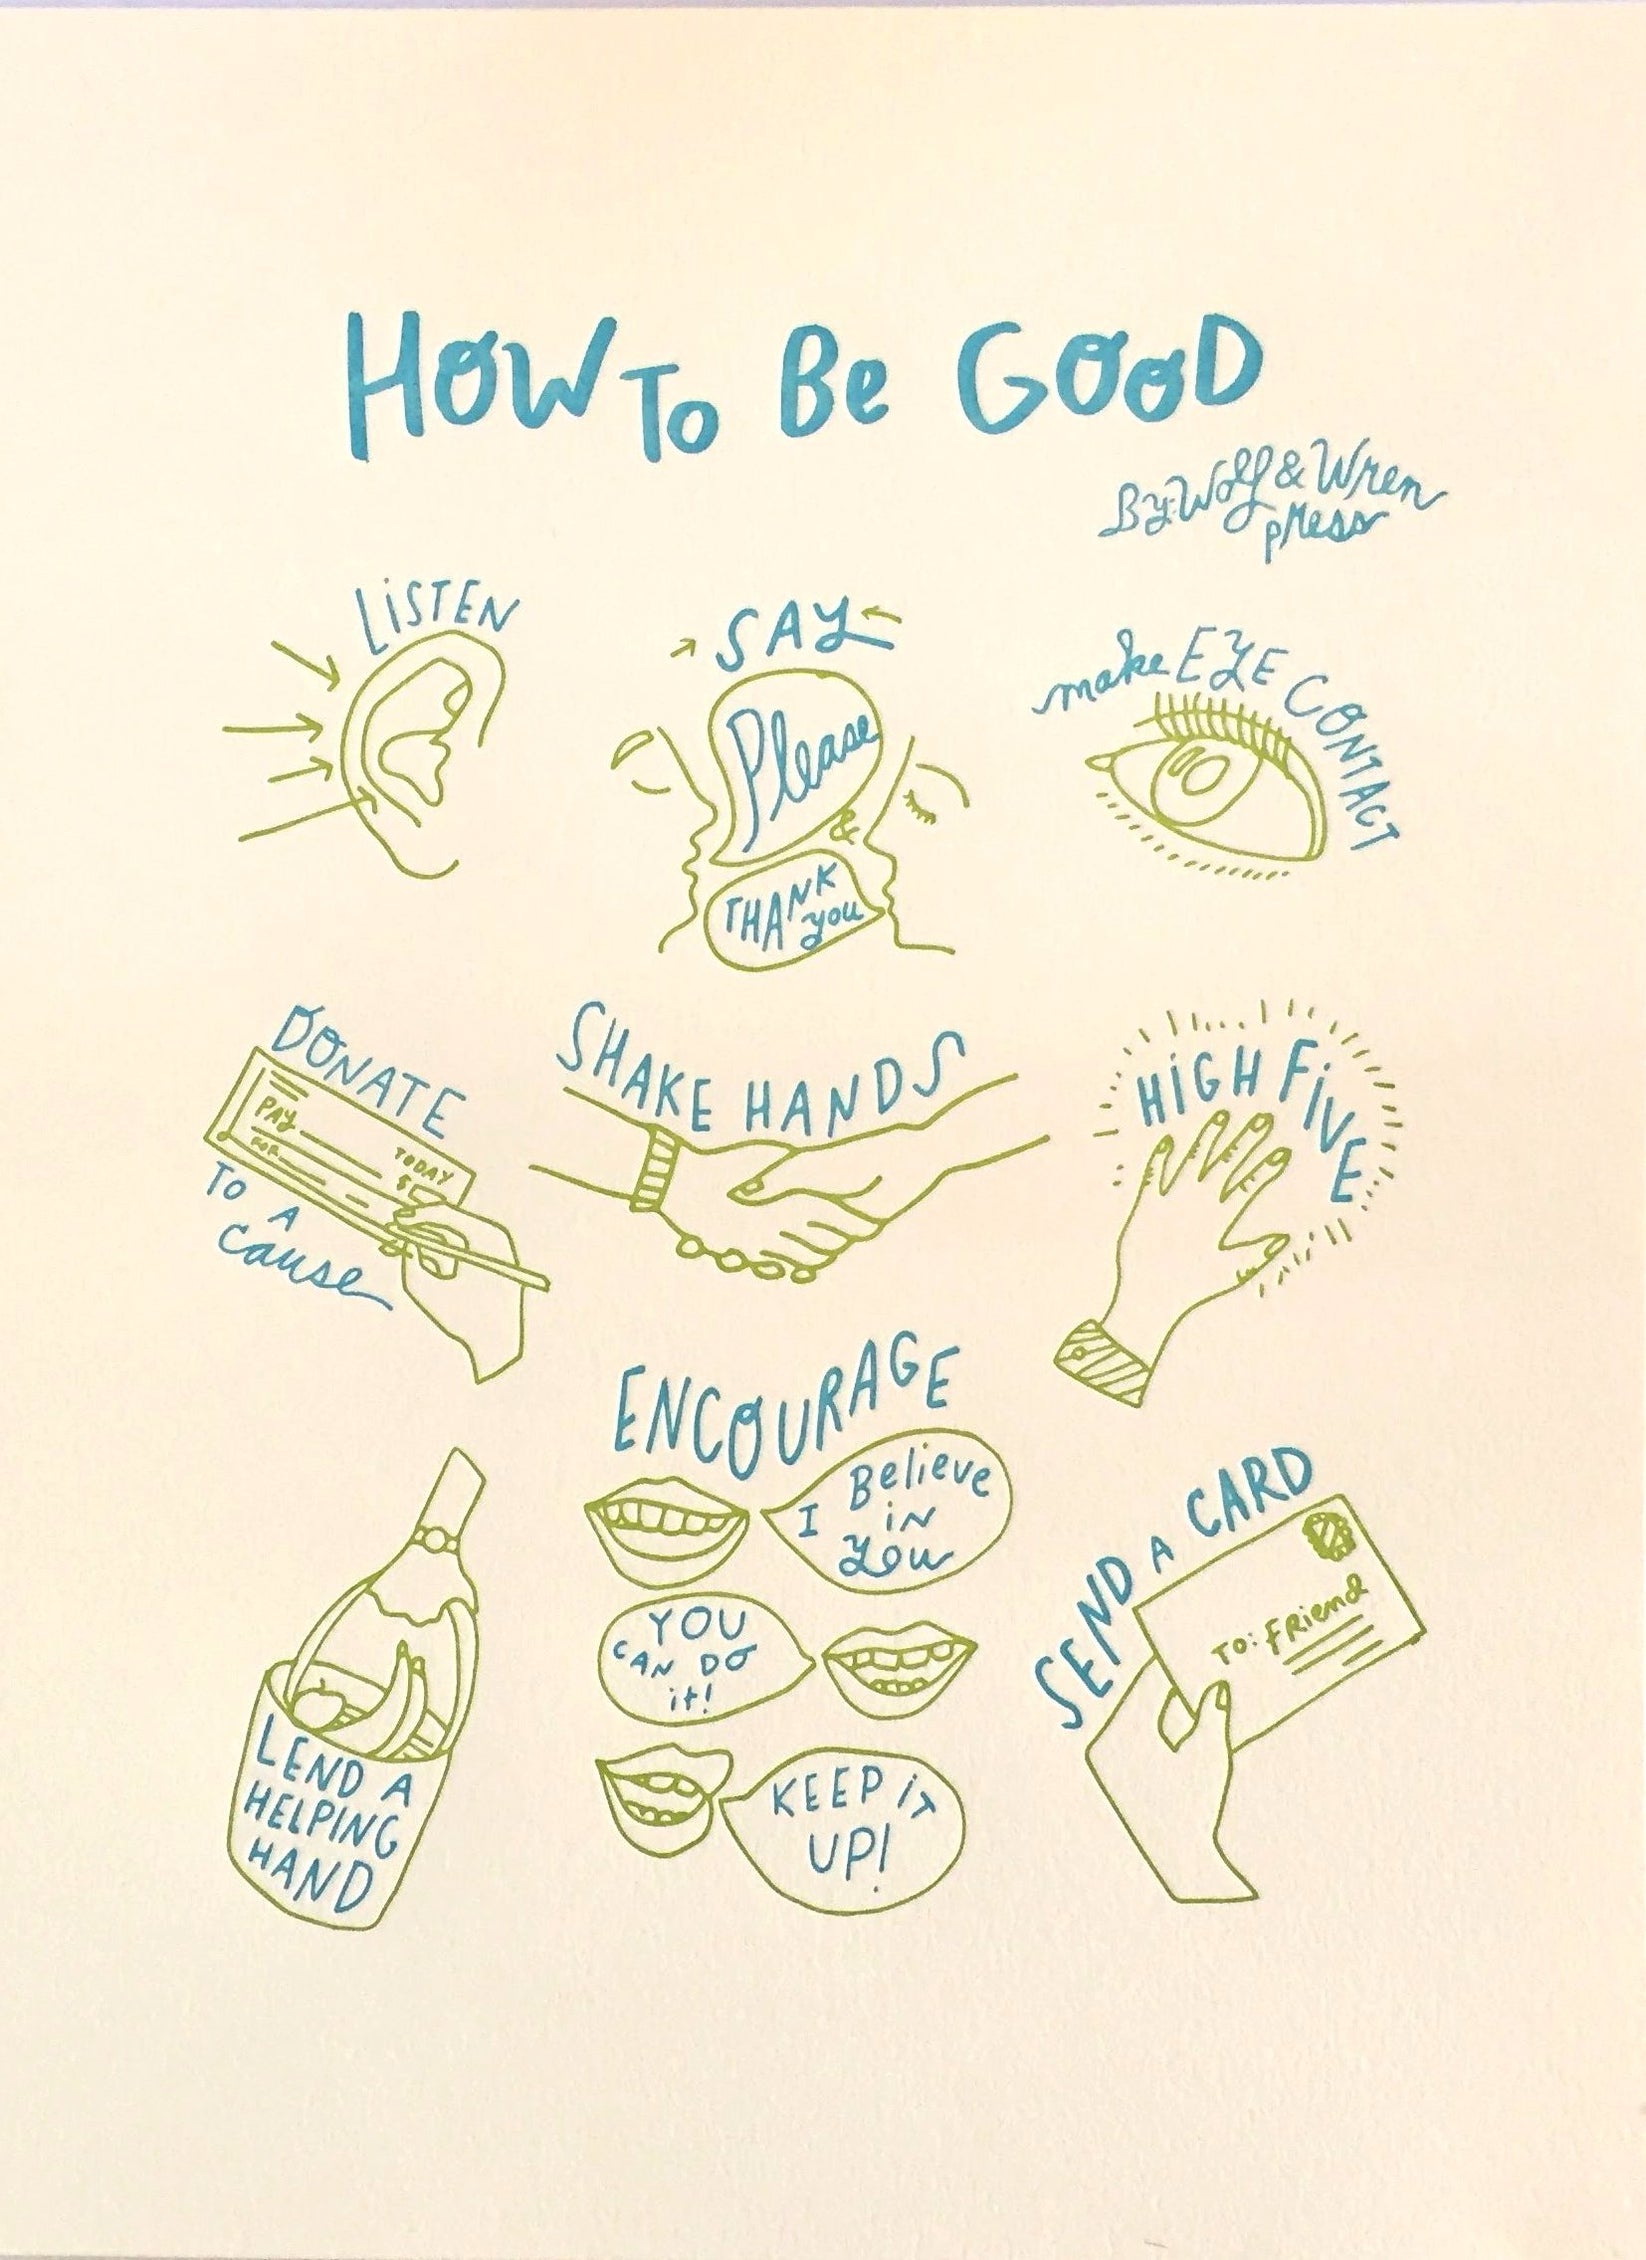 HOW TO Be GOOD
By: Wolf & Wren
press
LiSTEN
SAY
Please
&
THANK
you
make EYE CONTACT
DONATE
PAY
FOR
TODAY
$
TO
A
cause
SHAKE HANDS
HiGH FiVE
LEND A
HELPING
HAND
ENCOURAGE
I Believe
iN
You
YOU
CAN DO
it!
KEEP iT
UP!
SEND A CARD
TO: FRiend